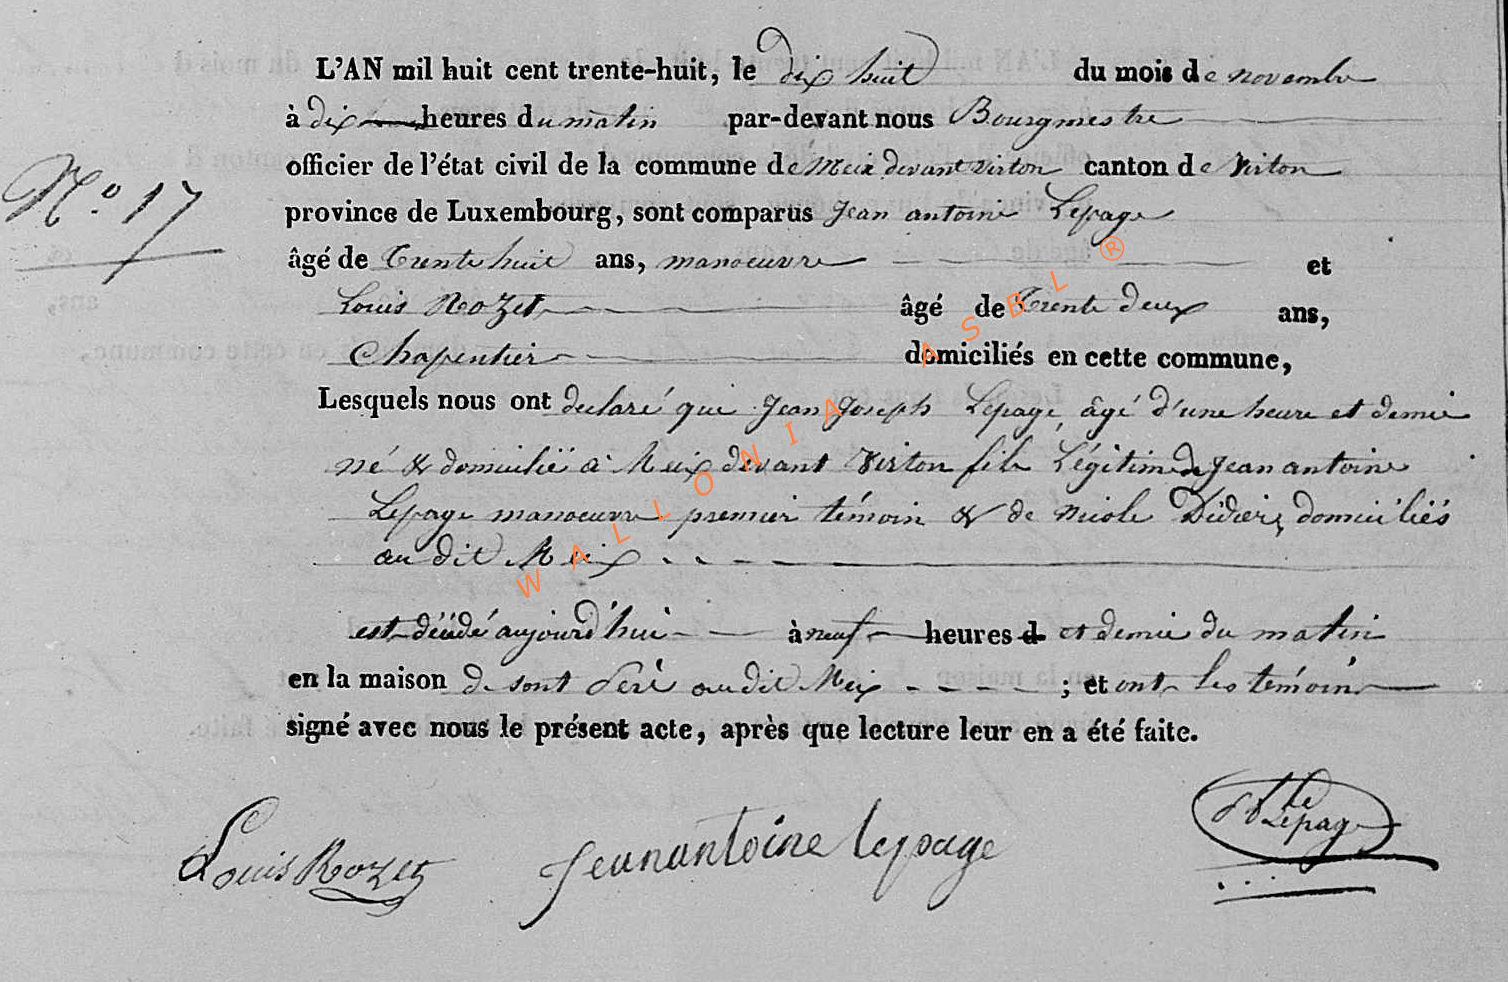 L'AN mil huit cent trente-huit, le dix huit du mois de novembre
à dix heures du matin par-devant nous Bourgmestre
officier de l'état civil de la commune de Meix devant virton canton de Virton
N.º 17
province de Luxembourg, sont comparus Jean antoine Lepage
âgé de Trente huit ans, manoeuvre et
Louis Rozet âgé de Trente deux ans,
Chapentier domiciliés en cette commune,
Lesquels nous ont declaré que Jean Joseph Lepage, âgé d'une heure et demie
né & domicilié à Meix devant Virton fils Légitime de Jean antoine
Lepage manoeuvre premier témoin & de Nicole Didier, domiciliés
au dit Meix
est décédé aujourd'hui à neuf heures d et demie du matin
en la maison de sont Peré au dit Meix ; et ont les témoins
signé avec nous le présent acte, après que lecture leur en a été faite.
Louis Rozet Jean antoine lepage Lepage
WALLONIA ASBL ®